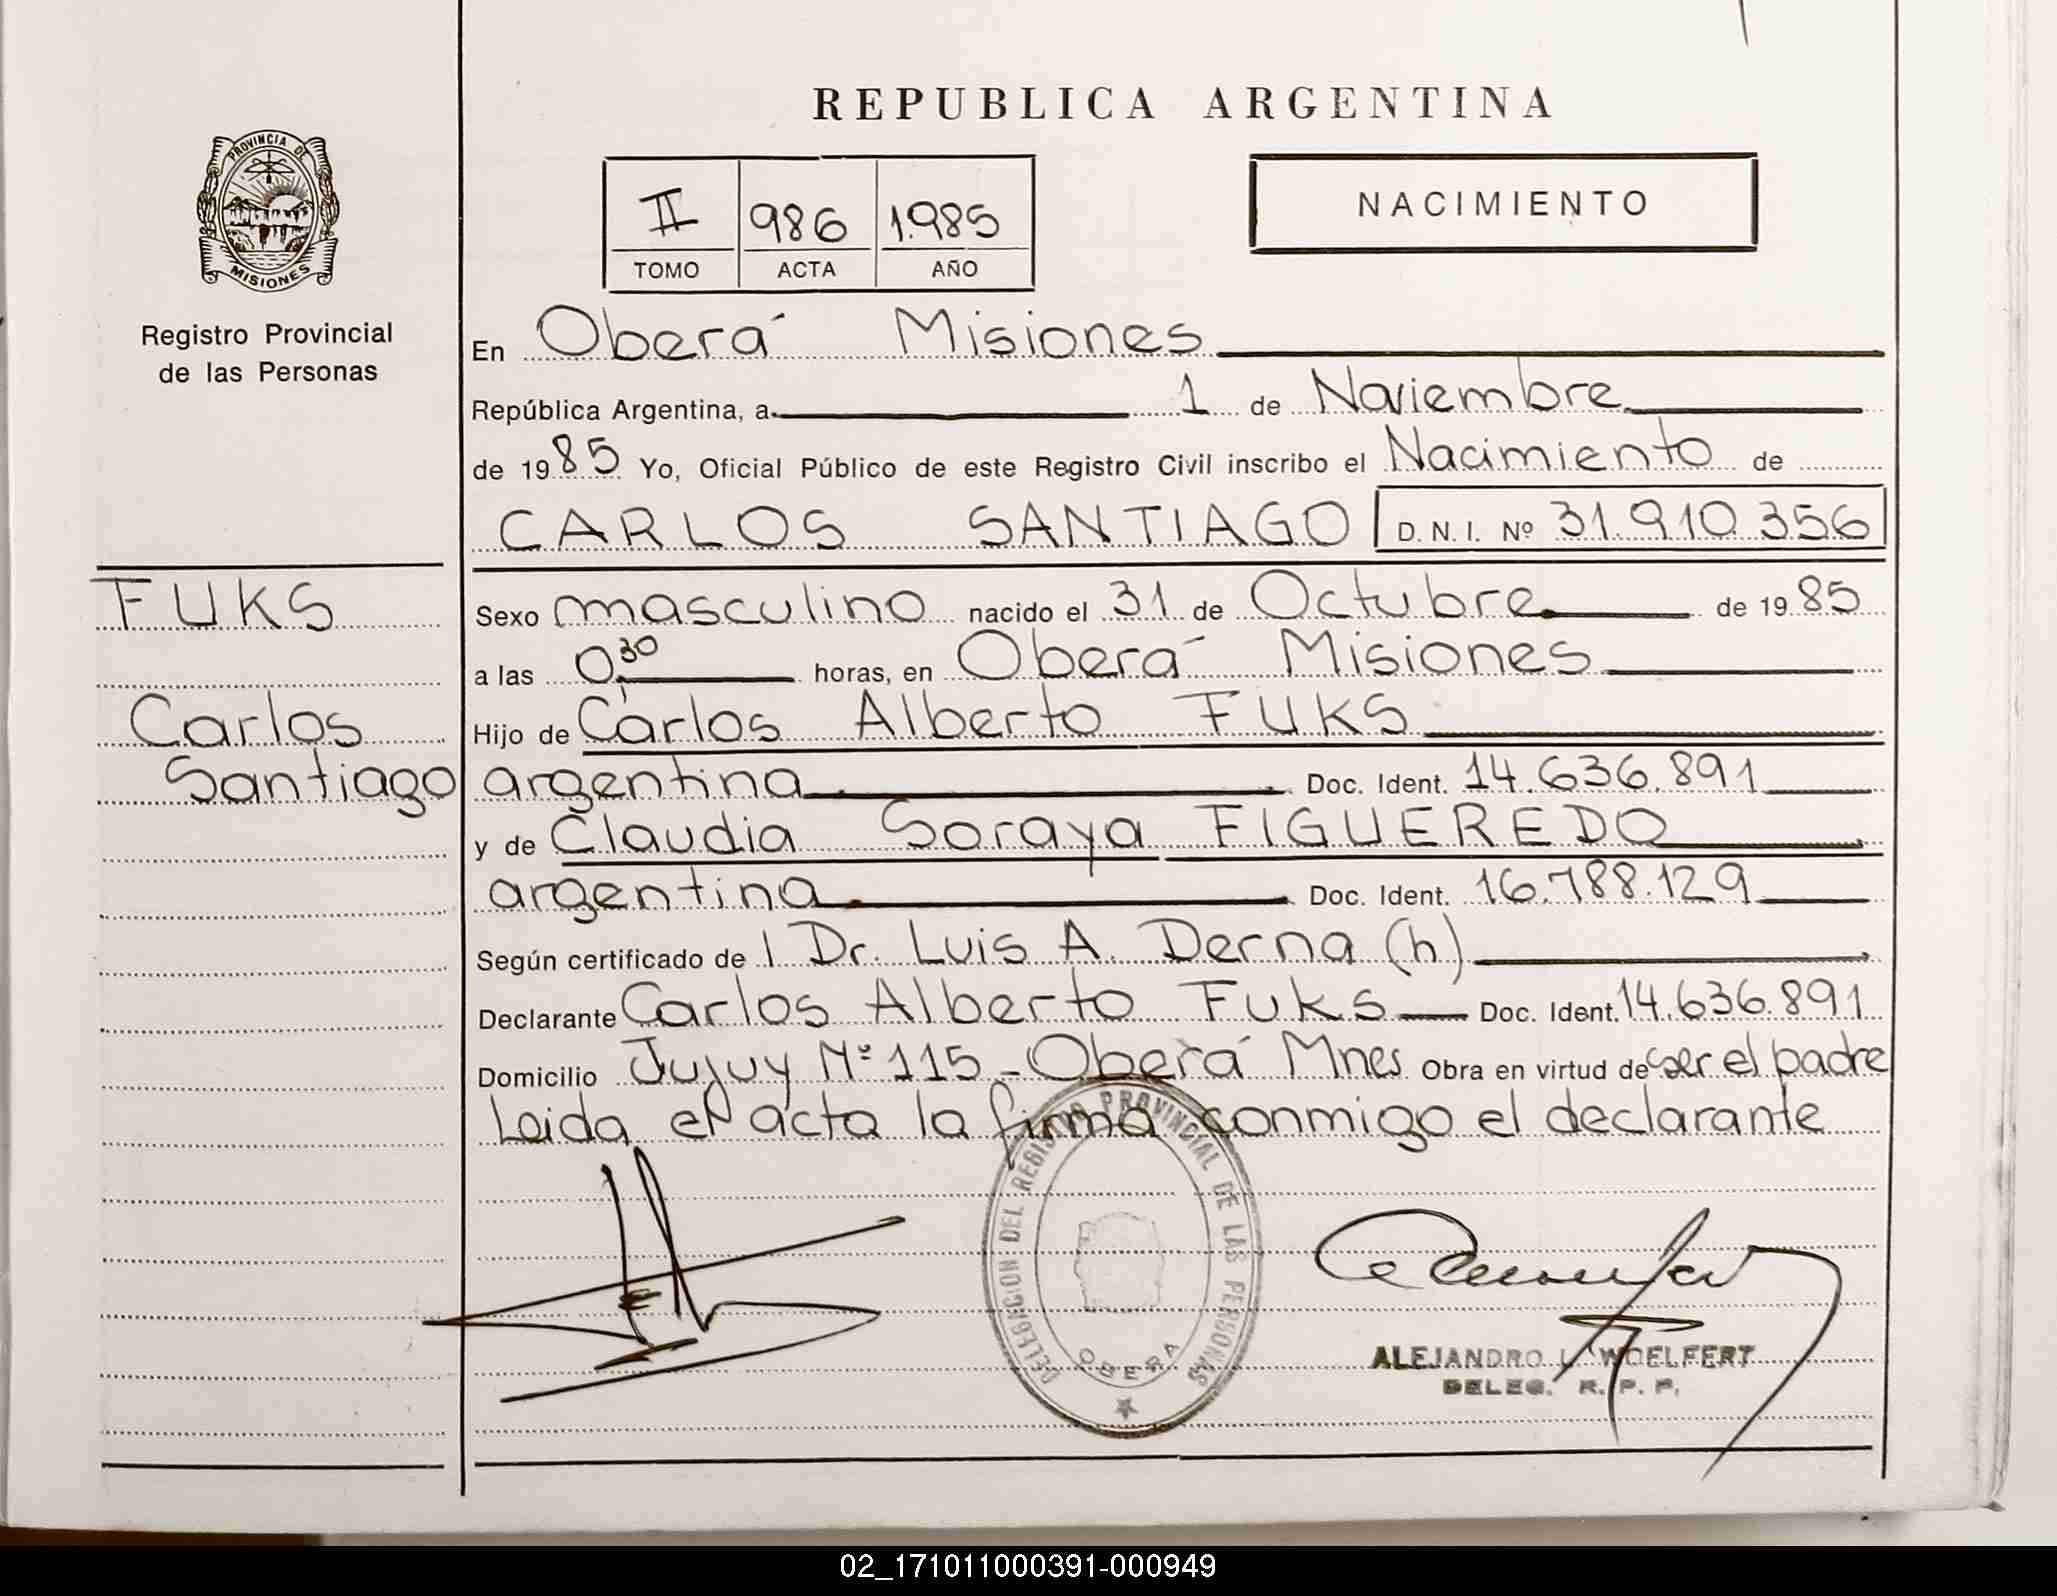 REPUBLICA ARGENTINA
PROVINCIA DE
MISIONES
Registro Provincial
de las Personas
II 986 1.985
TOMO ACTA AÑO
NACIMIENTO
En Oberá Misiones
República Argentina, a 1 de Noviembre
de 1985 Yo, Oficial Público de este Registro Civil inscribo el Nacimiento de
CARLOS SANTIAGO D.N.I. Nº 31.910.356
FUKS
Carlos
Santiago
Sexo masculino nacido el 31 de Octubre de 1985
a las 0.30 horas, en Oberá Misiones
Hijo de Carlos Alberto FUKS
argentina Doc. Ident. 14.636.891
y de Claudia Soraya FIGUEREDO
argentina Doc. Ident. 16.788.129
Según certificado de l Dr. Luis A. Derna (h)
Declarante Carlos Alberto Fuks Doc. Ident. 14.636.891
Domicilio Jujuy Nº 115 - Oberá Mnes Obra en virtud de ser el padre
Leida el acta la firma conmigo el declarante
DELEGACION DEL REGISTRO PROVINCIAL DE LAS PERSONAS
OBERA
ALEJANDRO L. WOELFERT
DELEG. R. P. P.
02_171011000391-000949